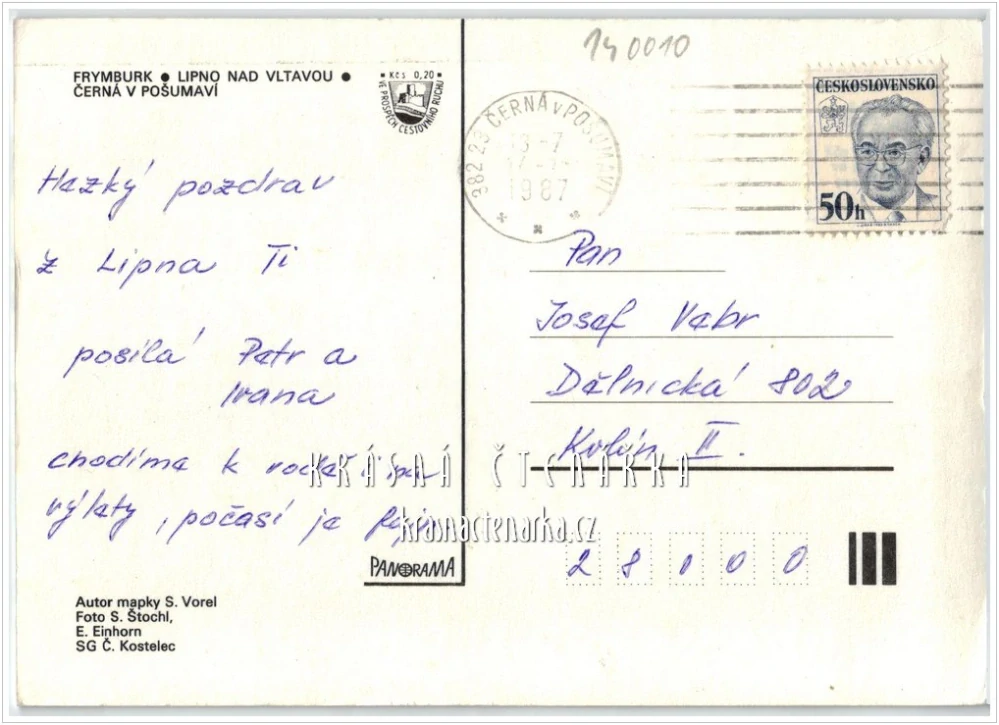 140010
FRYMBURK ● LIPNO NAD VLTAVOU ●
ČERNÁ V POŠUMAVÍ
Kčs 0,20
VE PROSPĚCH CESTOVNÍHO RUCHU
382 23 ČERNÁ v POŠUMAVÍ
13 -7
1987
ČESKOSLOVENSKO
50h
Hezký pozdrav
z Lipna Ti
posílá Petr a
Ivana
chodíme k vodě i na
výlety, počasí je fajn
Pan
Josef Vebr
Dělnická 802
Kolín II.
KRÁSNÁ ČTENÁŘKA
krasnactenarka.cz
28000
PANORAMA
Autor mapky S. Vorel
Foto S. Štochl,
E. Einhorn
SG Č. Kostelec